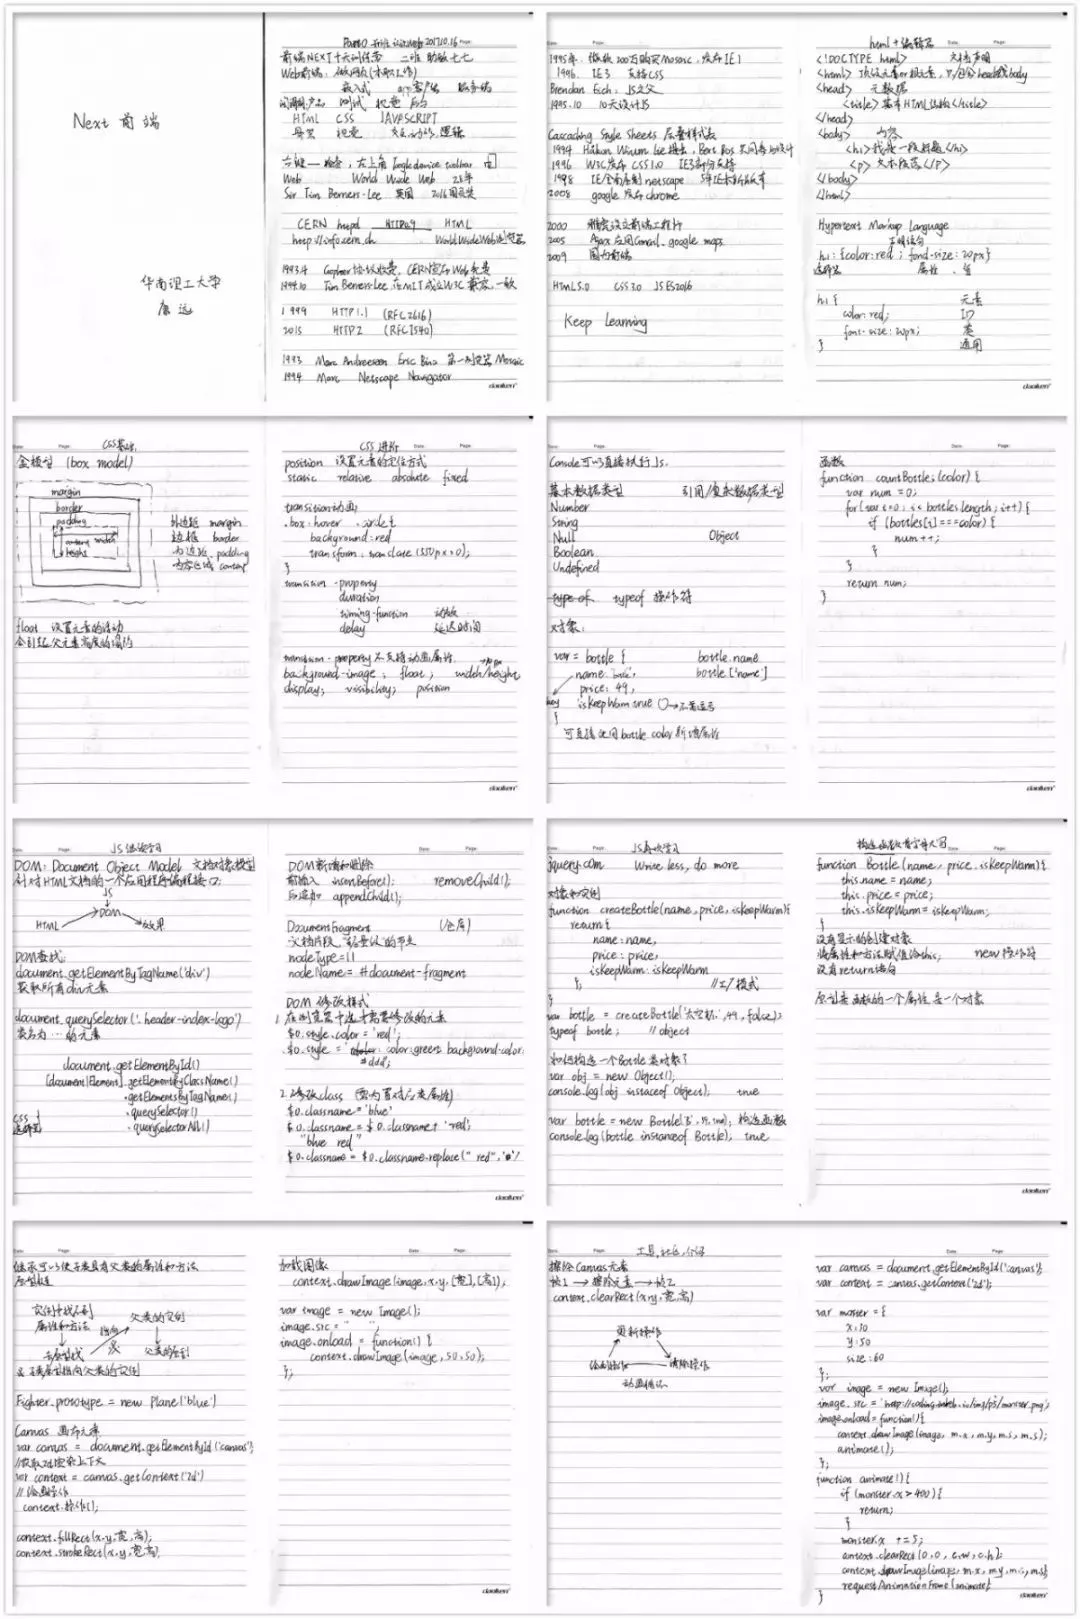 Next 前端
华南理工大学
康远
Part0 2017.10.16 Page:
前端NEXT十天训练营 二班 助教七七
Web前端:做网页(本职工作)
嵌入式 app客户端 服务端
测试 视觉 后台
HTML CSS JAVASCRIPT
骨架 视觉 交互动作,逻辑
右键—检查,左上角 Toggle device toolbar
Web World Wide Web 28年
Sir Tim Berners-Lee 英国 2016图灵奖
CERN httpd HTTP0.9 HTML
http://info.cern.ch WorldWideWeb浏览器
1993.4 Gopher协议收费,CERN宣布Web免费
1994.10 Tim Berners-Lee 在MIT成立W3C 兼容,一致
1999 HTTP1.1 (RFC2616)
2015 HTTP2 (RFC7540)
1993 Marc Andreessen Eric Bina 第一浏览器 Mosaic
1994 Marc Netscape Navigator
daolen
1995年 微软 200万购买Mosaic,发布IE1
1996 IE3 支持CSS
Brendan Eich: JS之父
1995.10 10天设计JS
Cascading Style Sheets 层叠样式表
1994 Håkon Wium Lie提出,Bert Bos 共同参与设计
1996 W3C发布 CSS1.0 IE3部分支持
1998 IE全面压制 netscape 5年IE未更新版本
2008 google 发布chrome
2000 雅虎设立前端工程师
2005 Ajax 应用Gmail、google maps
2009 国内前端
HTML5.0 CSS3.0 JS ES2016
Keep Learning
html + 编辑器
<!DOCTYPE html> 文档声明
<html> 顶级元素or根元素,只包含head或body
<head> 元数据
<title>基本HTML结构</title>
</head>
<body> 内容
<h1>我是一段标题</h1>
<p>文本段落</p>
</body>
</html>
Hypertext Markup Language
声明语句
h1:{color:red; fond-size:20px}
选择器 属性 值
h1{ 元素
color:red; ID
font-size:20px; 类
} 通用
daolen
CSS基础
盒模型 (box model)
margin
border
padding
content width
height
外边距 margin
边框 border
内边距 padding
内容区域 content
float 设置元素的浮动
会引起父元素高度的塌陷
CSS进阶
position 设置元素的定位方式
static relative absolute fixed
transition动画
.box:hover .circle{
background:red
transform:translate(350px,0);
}
transition-property
duration
timing-function
delay 延迟时间
transition-property不支持动画属性
background-image; float; width/height,
display; visibility; position
daolen
Console可以直接执行Js.
基本数据类型 引用/复杂数据类型
Number
String
Null Object
Boolean
Undefined
type of typeof 操作符
对象:
var = bottle { bottle.name
name: bottle['name']
price: 49,
key isKeepWarm:true
}
可直接使用bottle.color新增属性
函数
function countBottles(color) {
var num = 0;
for(var i=0; i< bottles.length; i++) {
if (bottles[i]===color) {
num++;
}
}
return num;
}
daolen
JS继续学习
DOM:Document Object Model 文档对象模型
针对HTML文档的一个应用程序编程接口
JS
DOM
HTML 效果
DOM查找:
document.getElementByTagName('div')
获取所有div元素
document.querySelector('.header-index-logo')
类名为…的元素
document.getElementById()
[document|Element].getElementByClassName()
.getElementsByTagName()
CSS .querySelector()
选择器 .querySelectorAll()
DOM新增和删除
前插入 insertBefore(); removeChild();
后追加 appendChild();
DocumentFragment (仓库)
文档片段"轻量级"的节点
nodeType=11
nodeName=#document-fragment
DOM 修改样式
1.在浏览器中选中需要修改的元素
$0.style.color = 'red';
$0.style = 'color:green; background-color:
#ddd';
2.修改class (需内置对应类属性)
$0.classname='blue'
$0.classname=$0.classname+' red';
"blue red"
$0.classname=$0.classname.replace(" red",' ')
daolen
JS高效学习
jquery.com Write less, do more
对象和实例
function createBottle(name,price,isKeepWarm){
return{
name:name,
price:price,
isKeepWarm:isKeepWarm
}; //工厂模式
}
var bottle = createBottle('太空杯',49,false);
typeof bottle; //object
如何构造一个Bottle类对象?
var obj = new Object();
console.log(obj instaceof Object); true
var bottle = new Bottle( 构造函数
console.log(bottle instanceof Bottle); true
构造函数首字母大写
function Bottle(name,price,isKeepWarm){
this.name = name;
this.price = price;
this.isKeepWarm= isKeepWarm;
}
没有显示的创建对象
将属性和方法赋值给this; new操作符
没有return语句
原型是函数的一个属性是一个对象
daolen
继承可以使子类具有父类的属性和方法
原型链
实例中找不到 父类的实例
属性和方法 指向
去原型找 父类的原型
子类原型指向父类的实例
Fighter.prototype = new Plane('blue')
Canvas 画布元素
var canvas = document.getElementById('canvas');
//获取2d渲染上下文
var context = canvas.getContext('2d')
//绘画操作
context.操作();
context.fillRect(x,y,宽,高);
context.strokeRect(x,y,宽,高)
加载图像
context.drawImage(image,x,y,[宽],[高]);
var image = new Image();
image.src = " "
image.onload = function() {
context.drawImage(image,50,50);
};
daolen
工具,社区,介绍
擦除Canvas元素
帧1→擦除元素→帧2
context.clearRect(x,y,宽,高)
更新操作
绘画操作 清除操作
动画循环
var canvas = document.getElementById('canvas');
var context = canvas.getContext('2d');
var monster = {
x:50
y:50
size:60
};
var image = new Image();
image.onload=function(){
context.drawImage(image, m.x, m.y, m.s, m.s);
animate();
};
function animate(){
if (monster.x>400){
return;
}
monster.x +=5;
context.clearRect(0,0,c.w,c.h);
context.drawImage(image,m.x,m.y,m.s,m.s);
requestAnimationFrame(animate);
}
daolen